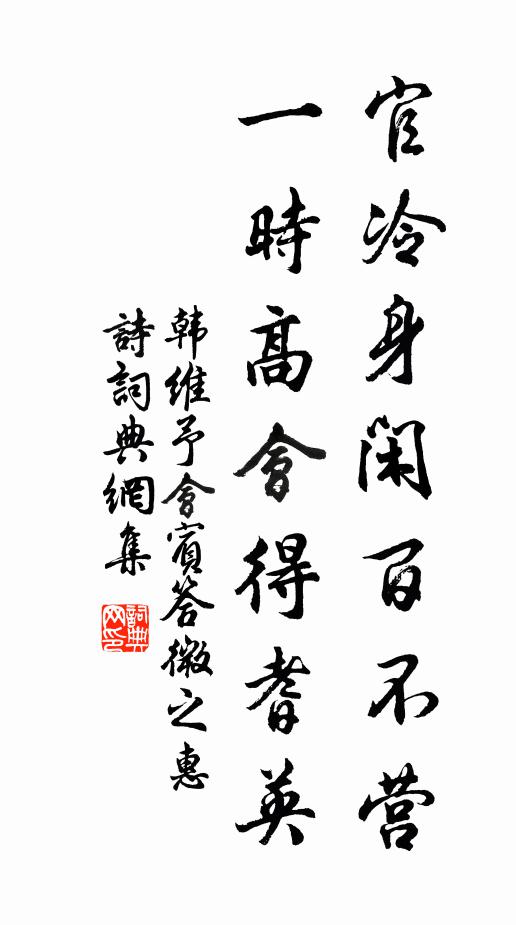 官冷身閑百不营
一時髙會得耆英
韩維予會賓答微之惠
詩詞典網集
詞典网印